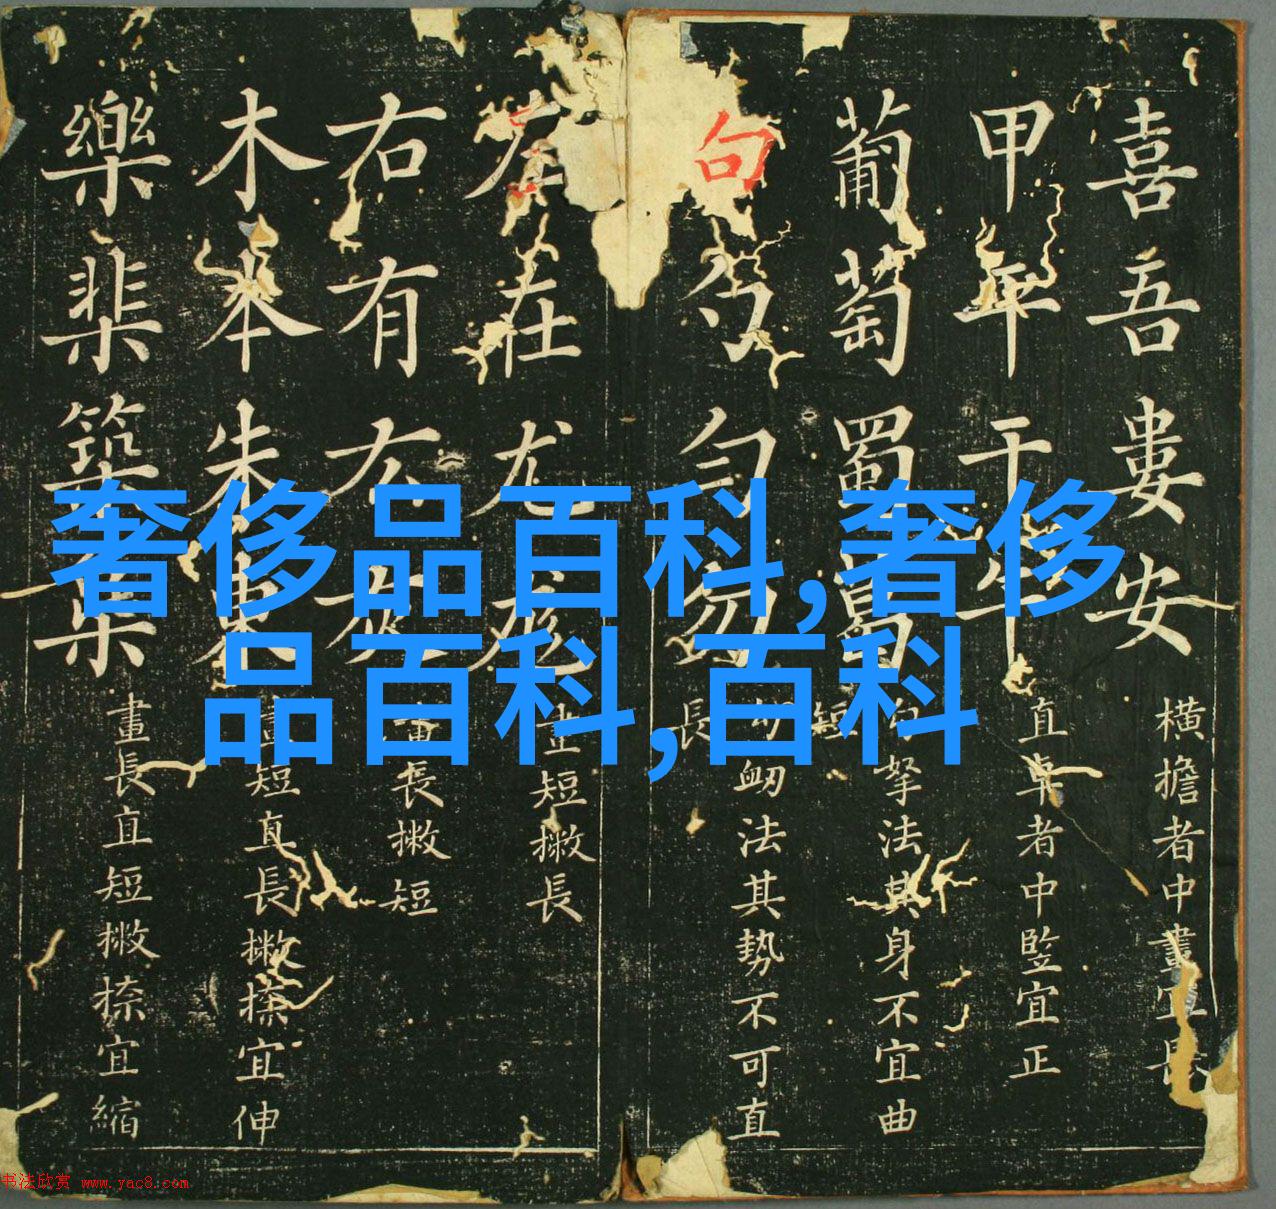 奢侈品百科,奢侈
品百科,百科
喜吾婁安
横擔者中畫宜長
甲平干
直卓者中竪宜正
葡萄蜀
短勾拏法其身不宜曲
句勺匀勿
長勾衂法其勢不可直
左在尤
畫短撇長
右有
畫長撇短
木本朱東
畫短直長撇捺宜伸
樂棐築
畫長直短撇捺宜縮
书法欣赏 www.yac8.com